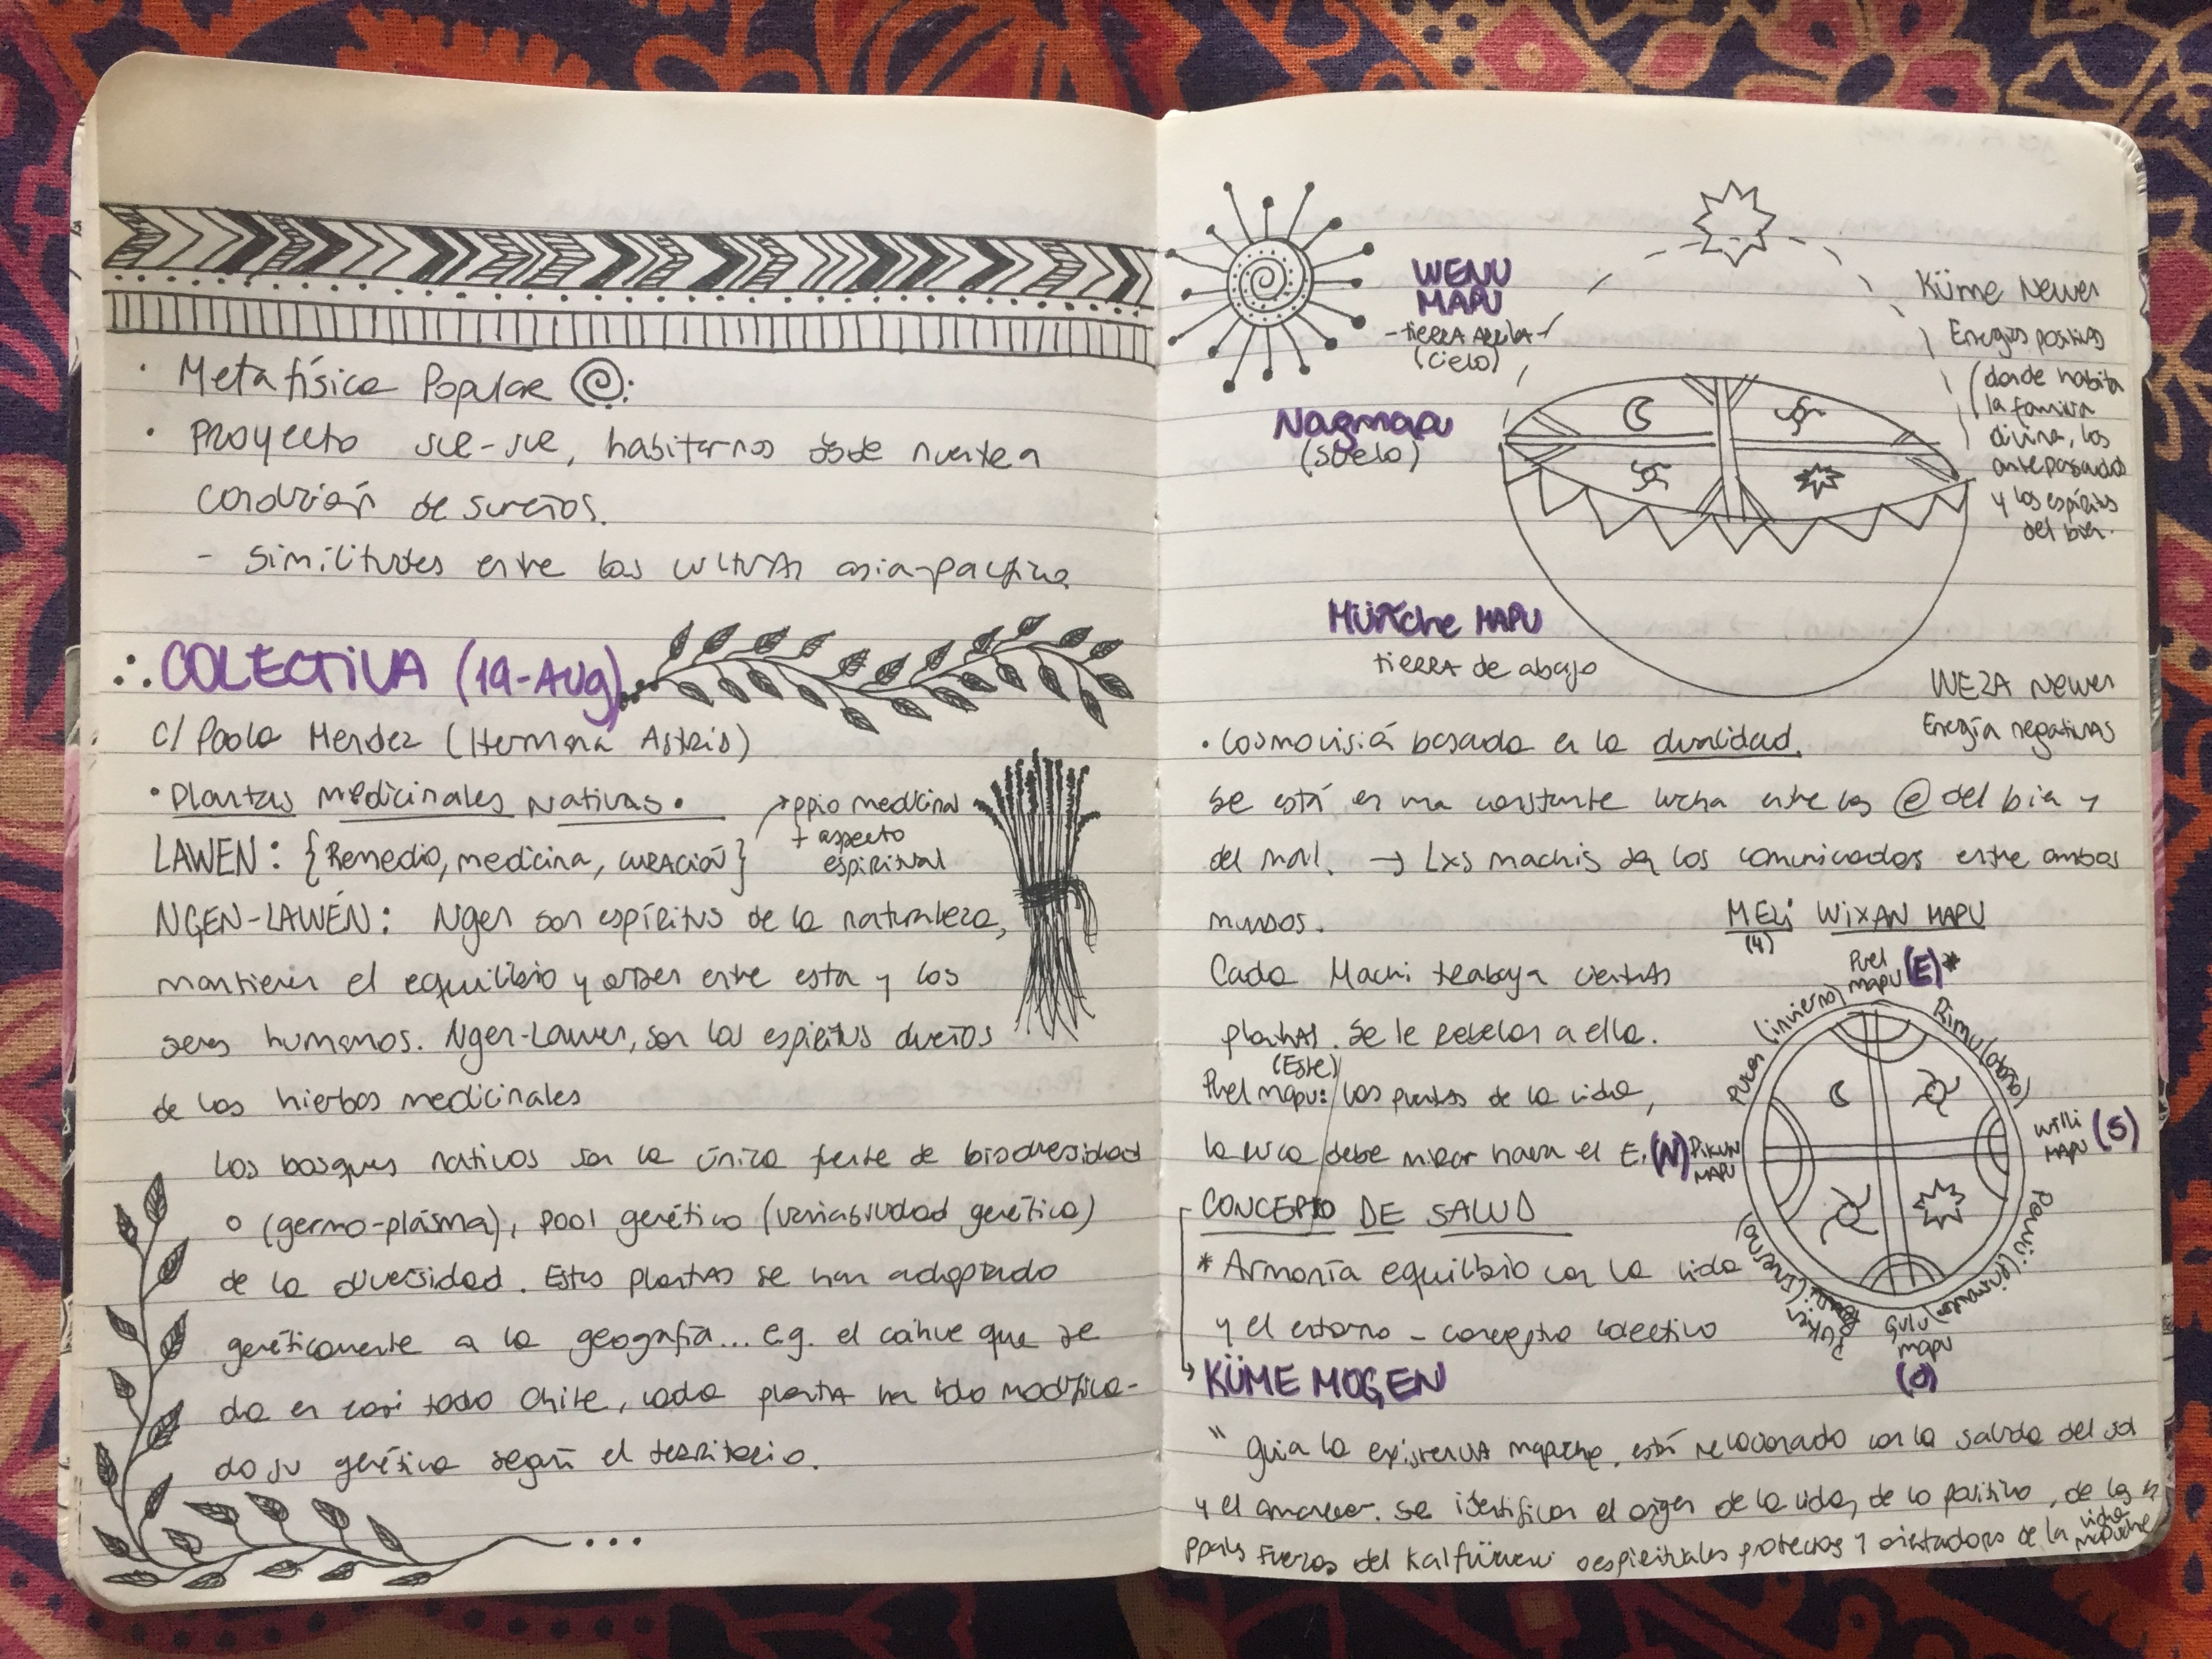 · Metafísica Popular
· Proyecto sur-sur, habitarnos desde nuestra
condición de sureños.
- Similitudes entre las culturas asia-pacífico
∴ COLECTIVA (19-Aug)
c/ Paola Mendez (Hermana Astrid)
· Plantas medicinales Nativas.
→ ppio medicinal
+ aspecto
espiritual
LAWEN: {Remedio, medicina, curación}
NGEN-LAWÉN: Ngen son espíritus de la naturaleza,
mantienen el equilibrio y orden entre esta y los
seres humanos. Ngen-Lawen, son los espíritus dueños
de las hierbas medicinales
Los bosques nativos son la única fuente de biodiversidad
o (germo-plasma), pool genético (variabilidad genética)
de la diversidad. Estas plantas se han adaptado
genéticamente a la geografía... e.g. el coihue que se
da en casi todo Chile, cada planta ha ido modifica-
do su genética según el territorio.
...
WENU
MAPU
-tierra arriba-
(cielo)
Küme Newen
Energías positivas
(donde habita
la familia
divina, los
antepasados
y los espíritus
del bien.
Nagmapu
(suelo)
Münche MAPU
tierra de abajo
WEZA Newen
Energía negativas
· Cosmovisió basada en la dualidad.
Se está en una constante lucha entre las @ del bien y
del mal. → Lxs machis son los comunicadores entre ambos
mundos.
MELi WiXAN MAPU
(4)
Cada Machi trabaja ciertas
plantas. Se le revelan a ella.
(Este)
Puel mapu: las puertas de la vida,
la ruca debe mirar hacia el E.
Puel
mapu (E)*
Rimu (otoño)
Willi
MAPU (S)
Pewü (primavera)
Gulu
mapu
(O)
Puken
(invierno)
(N) Pikun
MAPU
Pukem (invierno)
CONCEPTO DE SALUD
* Armonía equilibrio con la vida
y el entorno - concepto colectivo
KÜME MOGEN
" guia la existencia mapuche, está relacionado con la salida del sol
y el amanecer. Se identifican el origen de la vida, de lo positivo, de las
ppales fuerzas del o espirituales protectoras y orientadoras de la vida
mapuche